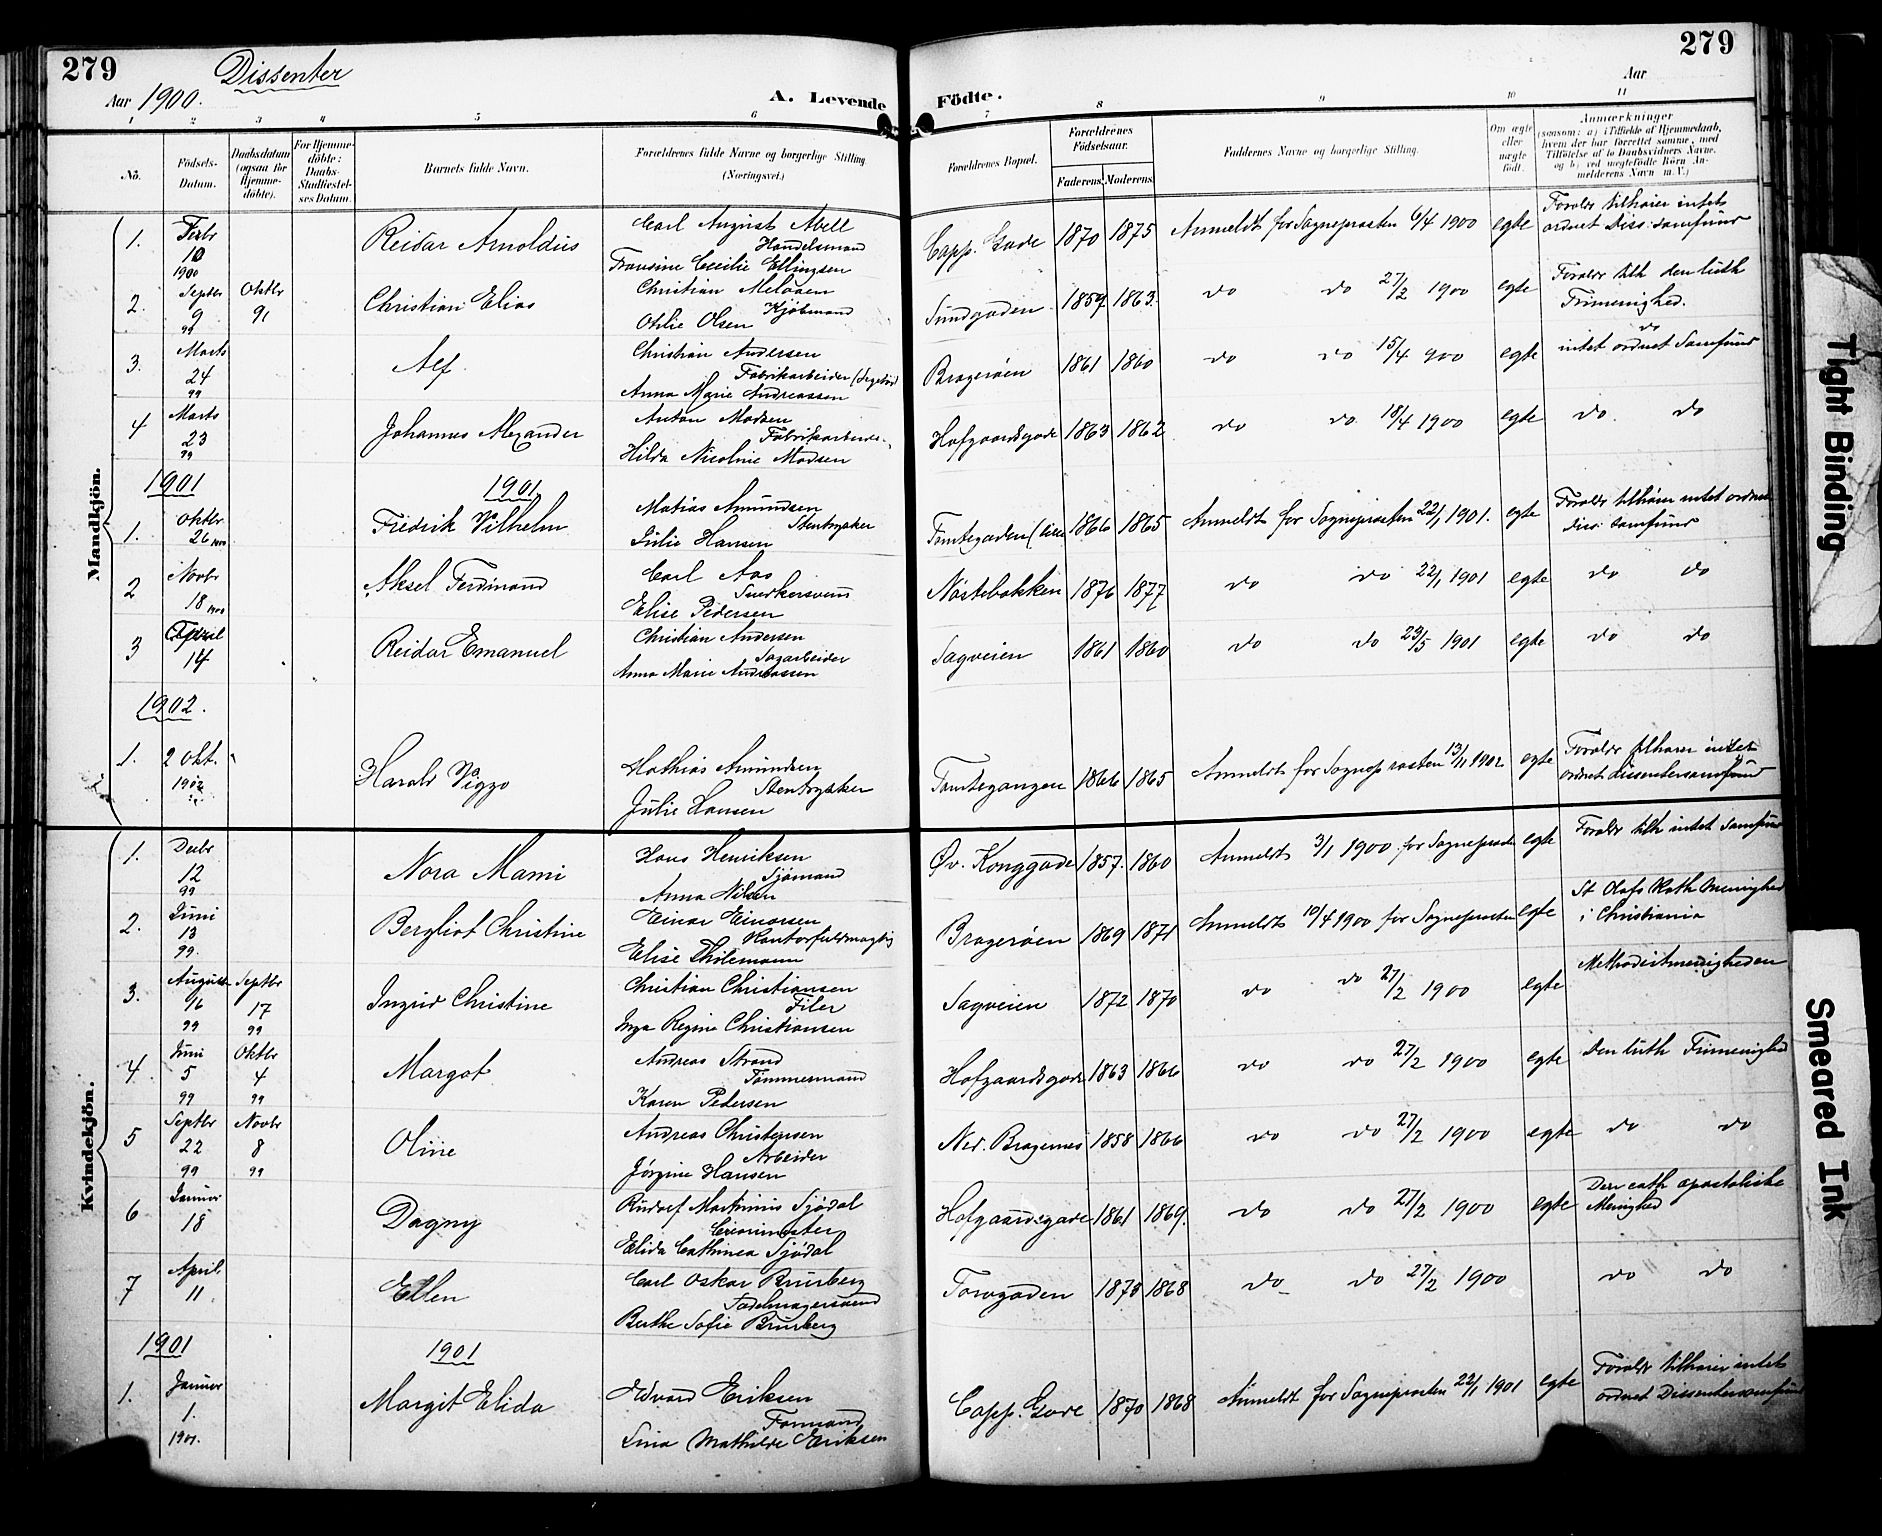 279
Dissenter
Aar 1900.
A. Levende
Födte.
Aar
279
1 2 3 4 5 6 7 8 9 10 11
No.
Födsels-Datum.
Daabsdatum (ogsaa for Hjemme-döbte).
For Hjemme-döbte: Daabs-Stadfæstel-ses Datum.
Barnets fulde Navn.
Forældrenes fulde Navne og borgerlige Stilling (Næringsvei.)
Forældrenes Bopæl.
Forældrenes Födselsaar.
Faderens. Moderens.
Faddernes Navne og borgerlige Stilling.
Om ægte eller uægte födt.
Anmærkninger
(saasom: a) i Tilfælde af Hjemmedaab, hvem der har forrettet samme, med Tilföielse af to Daabsvidners Navne, og b) ved uægtefödte Börn An-melderens Navn m. V.)
Mandkjön.
1. Febr 10 1900 Reidar Arnoldus Carl August Abell Handelsmand Fransine Cecilie Ellingsen Capp. Gade 1870 1875 Anmeldt for Sogneprasten 6/4 1900 egte Foraldr tilhører intet ordnet Diss: samfund
2. Septbr 9 99 Oktbr 9, Christian Elias Christian Meløen Kjøbmand Othlie Olsen Sundgaden 1859 1863. do do 27/2 1900 egte Foraldr tilh den luth Frimenighed.
3. Marts 24 99 Alf Christian Andersen Fabrikarbeider Anna Marie Andreassen Bragerøen 1861 1860 do do 15/4 900 egte do intet ordnet Samfund
4 Marts 23 99 Johannes Alexander Anton Madsen Fabrikarbeider Hilda Nicoline Madsen Hofgaardsgade 1863 1862 do do 18/4 1900 egte do. do
1901 1901
1. Oktbr 26 1900 Fredrik Vilhelm Matias Amundsen Stentrykker Julie Hansen Tomtegaden 1866 1865 Anmeldt for Sogneprasten 22/1 1901. egte Foraldr tilhører intet ordnet diss: samfund
2 Novbr 18 1900 Aksel Ferdinand Carl Aas Snedkersvend Elise Pedersen Nøstebakken 1876 1877 do do 22/1 1901 egte do do
3 April 14 Reidar Emanuel Christian Andersen Sagarbeider Anna Marie Andreassen Sagveien 1861 1860 do do 23/5 1901 egte do do
1902.
1. 2 Okt. 1902 Harald Viggo Mathias Amundsen Stentrykker Julie Hansen Tomtegangen 1866 1865 Anmeldt for Sogneprasten 13/11 1902 egte Foraldr tilhører intet ordnet dissentersamfund
Kvindekjön.
1. Decbr 12 99 Nora Mami Hans Henriksen Sjømand Anna Nilsen Øv. Konggade 1857. 1860 Anmeldt 3/1 1900 for Sogneprasten egte Foraldr tilh intet Samfund
2. Juni 13 99. Bergliot Christine Einar Einarsen Kontorfuldmægtig Elise Thilemann Bragerøen 1869 1871 Anmeldt 10/4 1900 for Sogneprasten egte St Olafs Kath Menighed i Christiania
3. August 6 99 Septbr 17 99 Ingrid Christine Christian Christiansen Filer Inga Regine Christiansen Sagveien 1872 1870 do do 27/2 1900 egte Methodistmenigheden
4 Juni 5 99 Oktbr 4 99 Margot Andreas Strand Tømmermand Karen Pedersen Hofgaardsgade 1863 1866 do do 27/2 1900 egte Den luth Frimenighed
5 Septbr 22 99 Novbr 8 99 Oline Andreas Christensen Arbeider Jørgine Hansen Ned. Bragernes 1858 1866 do do 27/2 1900 egte do do
6 Januar 18 Dagny Rudolf Martinius Sjødal Elida Cathinca Sjødal Hofgaardsgade 1861 1869. do do 27/2 1900 egte Den cath apostoliske Menighed
7 April 11 Ellen Carl Oskar Brusberg Sadelmagersvend Berthe Sofie Brusberg Torvgaden 1870 1868 do do 27/2 1900 do do
1901 1901
1. Januar 1. 1901. Margit Elida Edvard Eriksen Formand Lina Mathilde Eriksen Capp. Gade 1870 1868 Anmeldt for Sogneprasten 22/1 1901 egte Foraldr tilhører intet ordnet Dissentersamfund
Tight Binding
Smeared Ink